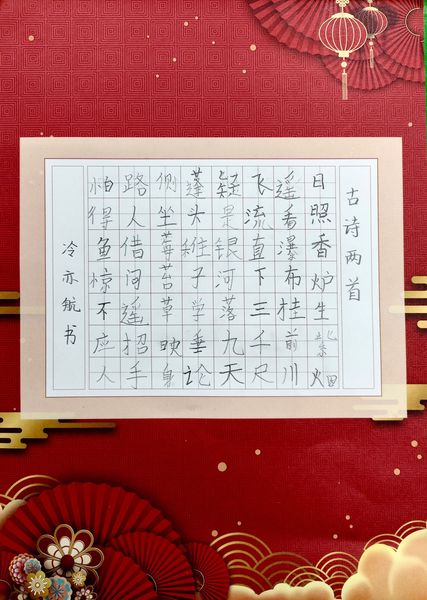 古诗两首
日照香炉生紫烟
遥看瀑布桂前川
飞流直下三千尺
疑是银河落九天
蓬头稚子学垂论
侧坐莓苔草映身
路人借问遥招手
怕得鱼惊不座人
冷亦航书